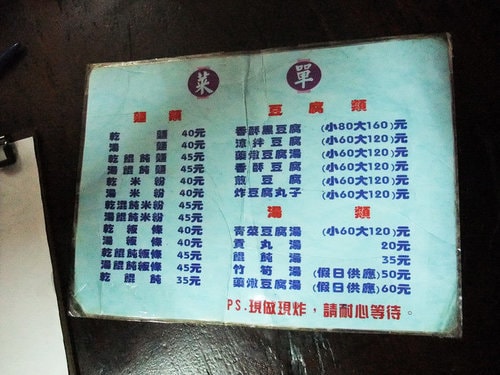 菜 單
麵 類
乾 麵 40元
湯 麵 40元
乾 餛 飩 麵 45元
湯 餛 飩 麵 45元
乾 米 粉 40元
湯 米 粉 40元
乾餛飩米粉 45元
湯餛飩米粉 45元
乾 粄 條 40元
湯 粄 條 40元
乾餛飩粄條 45元
湯餛飩粄條 45元
乾 餛 飩 35元
豆 腐 類
香酥黑豆腐 (小80大160)元
涼 拌 豆 腐 (小60大120)元
藥燉豆腐湯 (小60大120)元
香 酥 豆 腐 (小60大120)元
煎 豆 腐 (小60大120)元
炸豆腐丸子 (小60大120)元
湯 類
青菜豆腐湯 (小60大120)元
貢 丸 湯 20元
餛 飩 湯 35元
竹 筍 湯 (假日供應)50元
藥燉豆腐湯 (假日供應)60元
PS.現做現炸，請耐心等待。